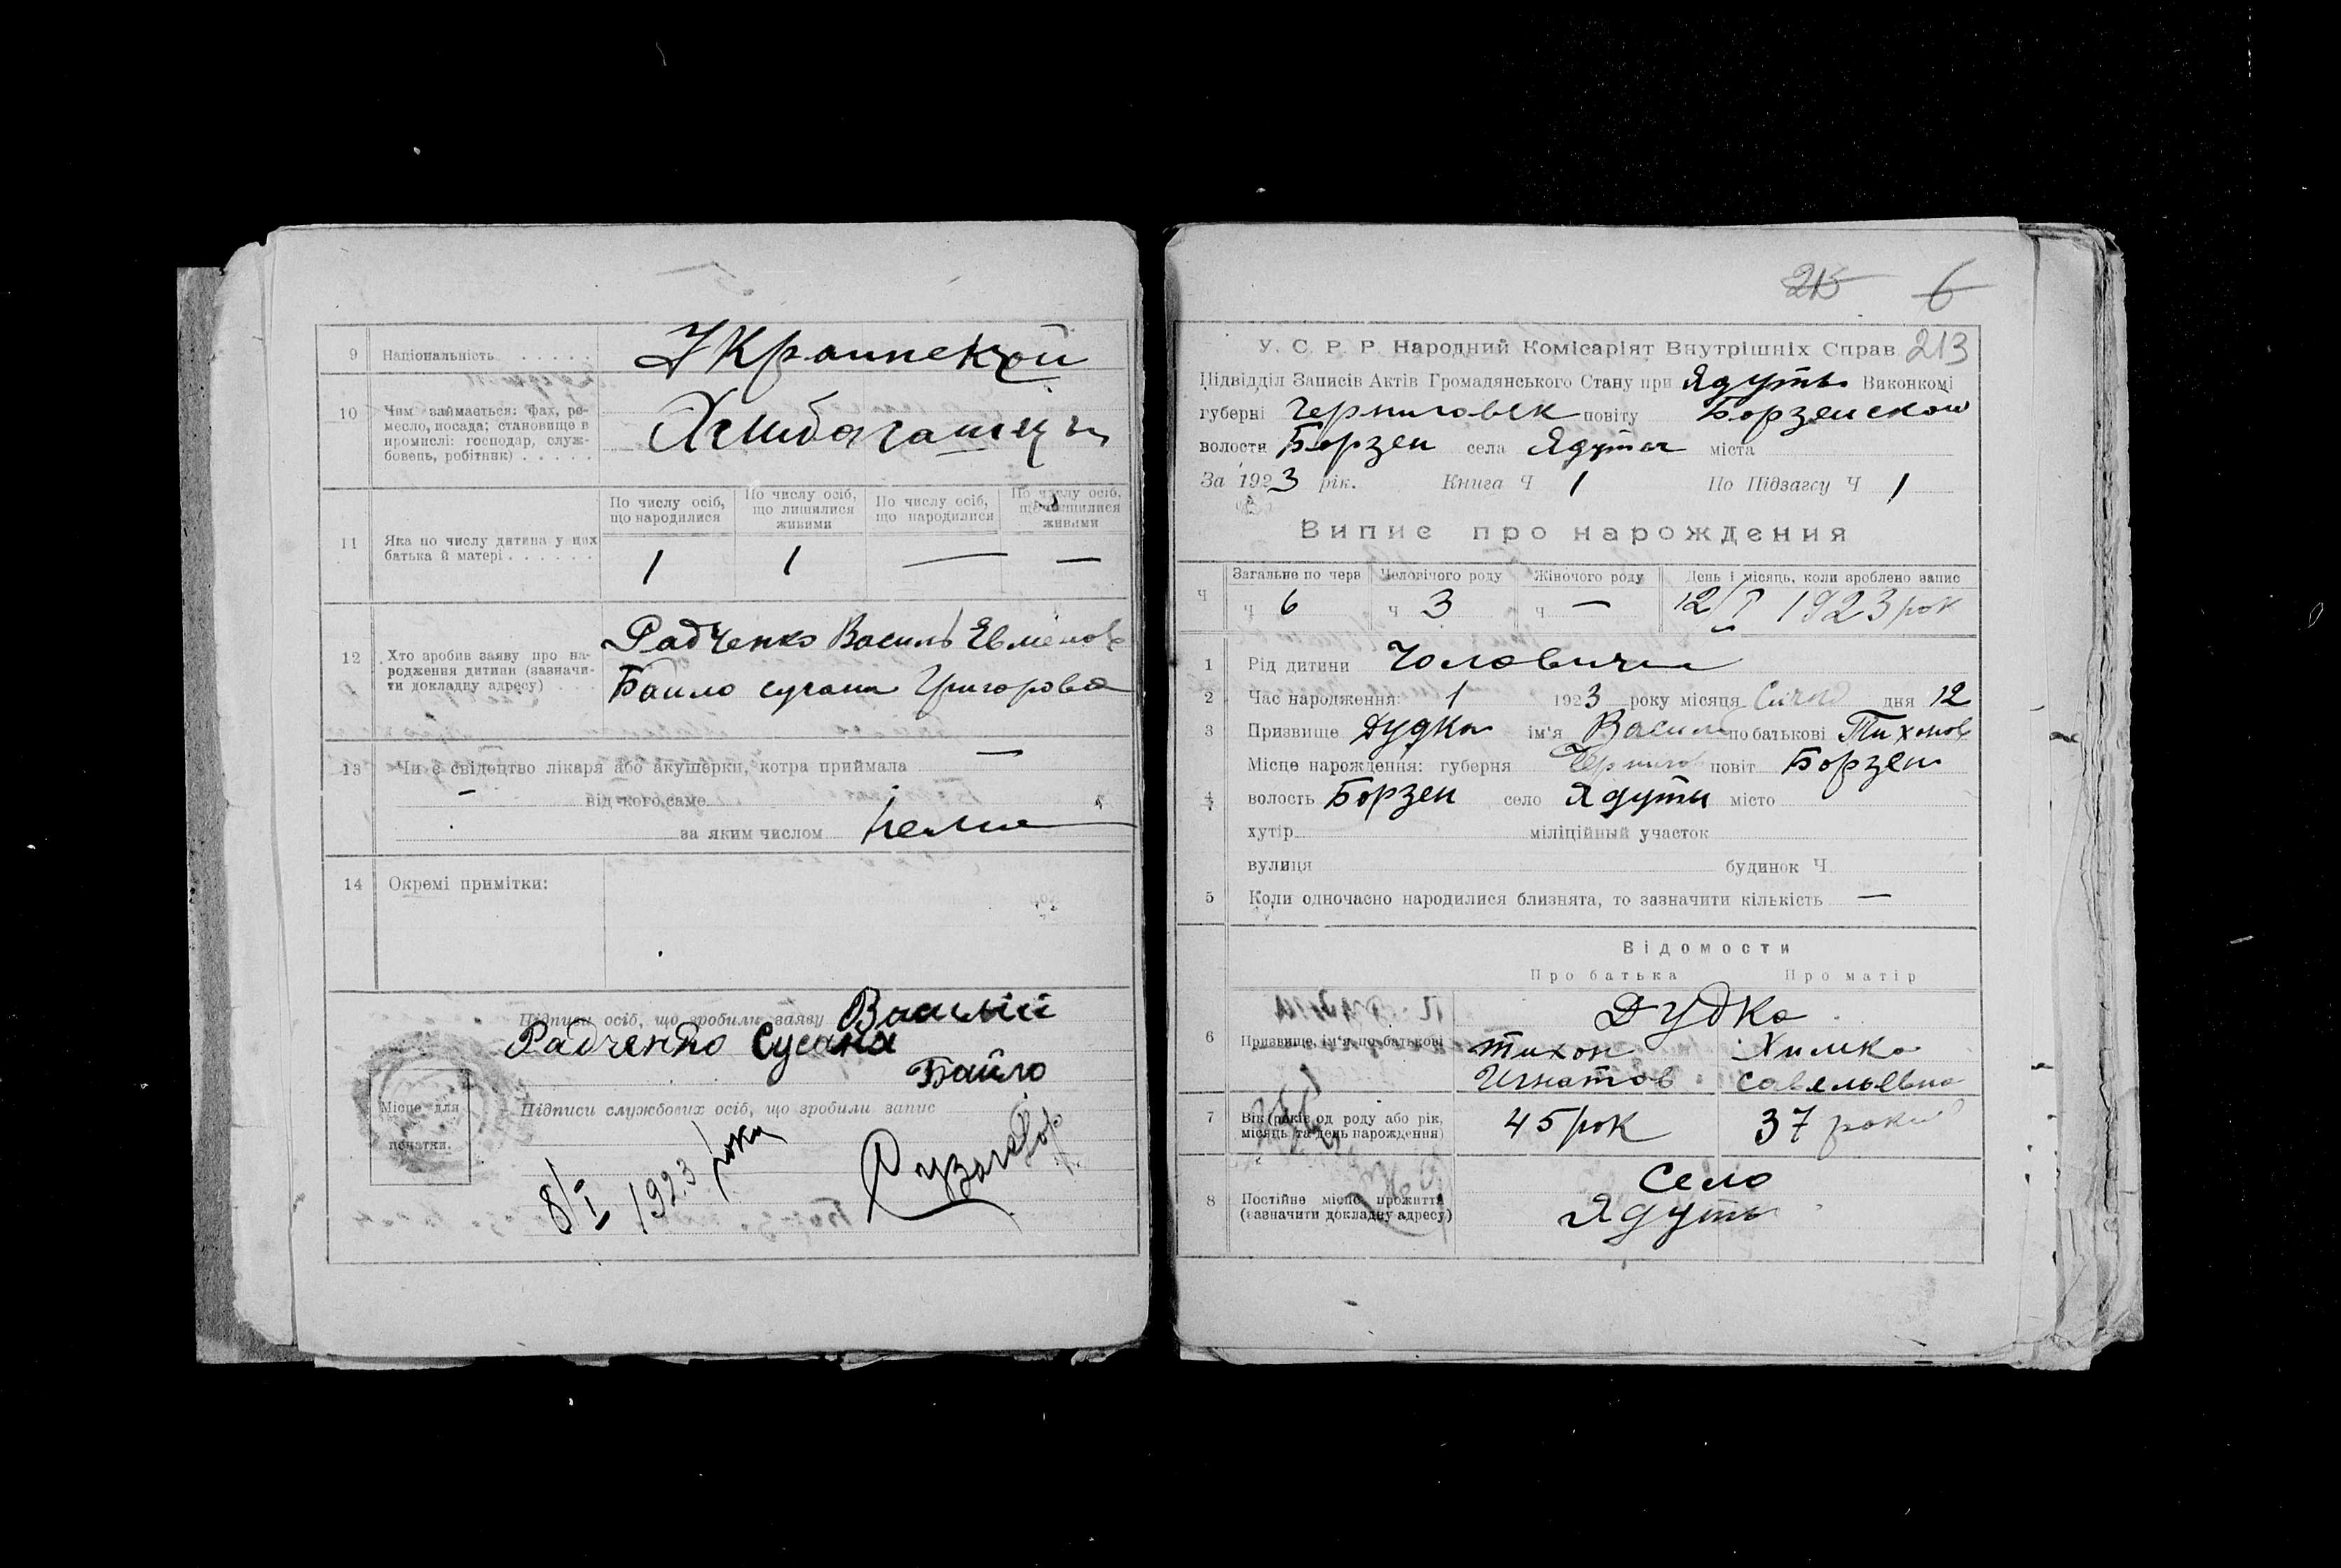 9 Національність . . . . . Украинской
10 Чим займається: фах, ре-
месло, посада; становище в
промислі: господар, служ-
бовець, робітник) . . . . .
Хлибагатци
По числу осіб, що народилися
По числу осіб, що лишилися живими
По числу осіб, що народилися
По числу осіб, що лишилися живими
11 Яка по числу дитина у цих
батька й матері . . . . . .
1 1 — —
12 Хто зробив заяву про на-
родження дитини (зазначи-
ти докладну адресу) . . .
Радченко Василь Евменов
Байло сусана Григорова
13 Чи є свідоцтво лікаря або акушерки, котра приймала —
— від кого саме
за яким числом нема
14 Окремі примітки:
Підписи осіб, що зробили заяву Василий
Радченко Сусана
Байло
Місце для
печатки.
Підписи службових осіб, що зробили запис
8/I 1923 рока
25 6
У. С. Р. Р. Народний Комісаріят Внутрішніх Справ 213
Підвідділ Записів Актів Громадянського Стану при Ядуть Виконкомі
губерні Черниговск повіту Борзенской
волости Борзен села Ядути міста
За 1923 рік. Книга Ч 1 По Підзагсу Ч 1
Випис про нарождения
Ч Загальне по черв Человічого роду Жіночого роду День і місяць, коли зроблено запис
ч 6 ч 3 ч — 12/I 1923 рок
1 Рід дитини Чоловичи
2 Час народження: 1 1923 року місяця Сичня дня 12
3 Призвище Дудка ім'я Василь по батькові Тихонов
Місце народження: губерня Чернигов повіт Борзен
4 волость Борзен село Ядути місто
хутір міліційный участок
вулиця будинок Ч
5 Коли одночасно народилися близнята, то зазначити кількість —
Відомости
Про батька Про матір
6 Призвище, ім'я, по-батькові
Дудка
Тихон Химка
Игнатов савельевна
7 Вік (років од роду або рік,
місяць та день нарождення)
45 рок 37 роки
8 Постійне місце прожиття
(зазначити докладну адресу)
Село
Ядуть